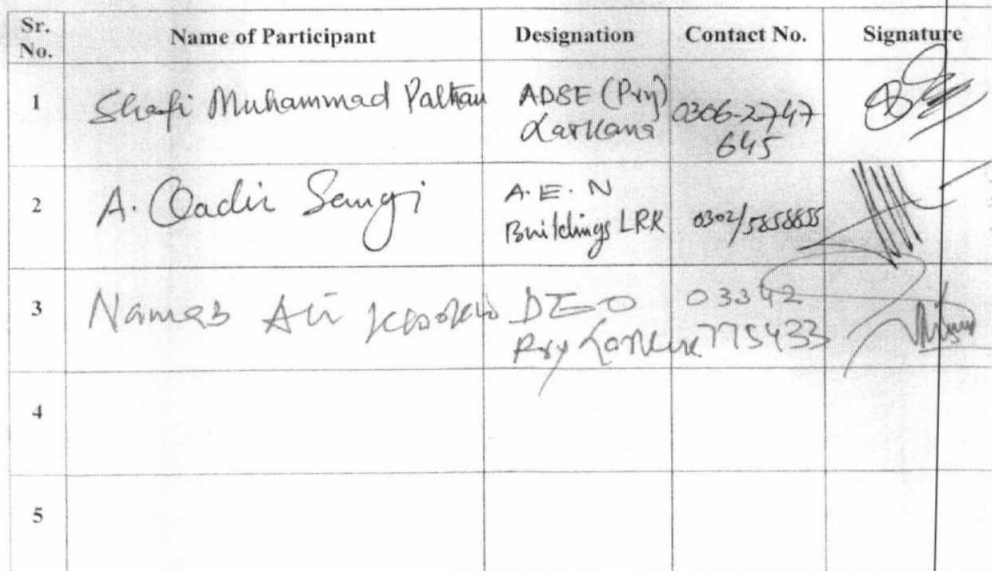 Sr. No. Name of Participant Designation Contact No. Signature
1 Shafi Muhammad Pathan ADSE (Pry) Larkana 0306-2747645
2 A. Qadir Sangi A.E.N Buildings LRK 0302/5858655
3 Ali DEO Pry Larkana 03342775433
4
5